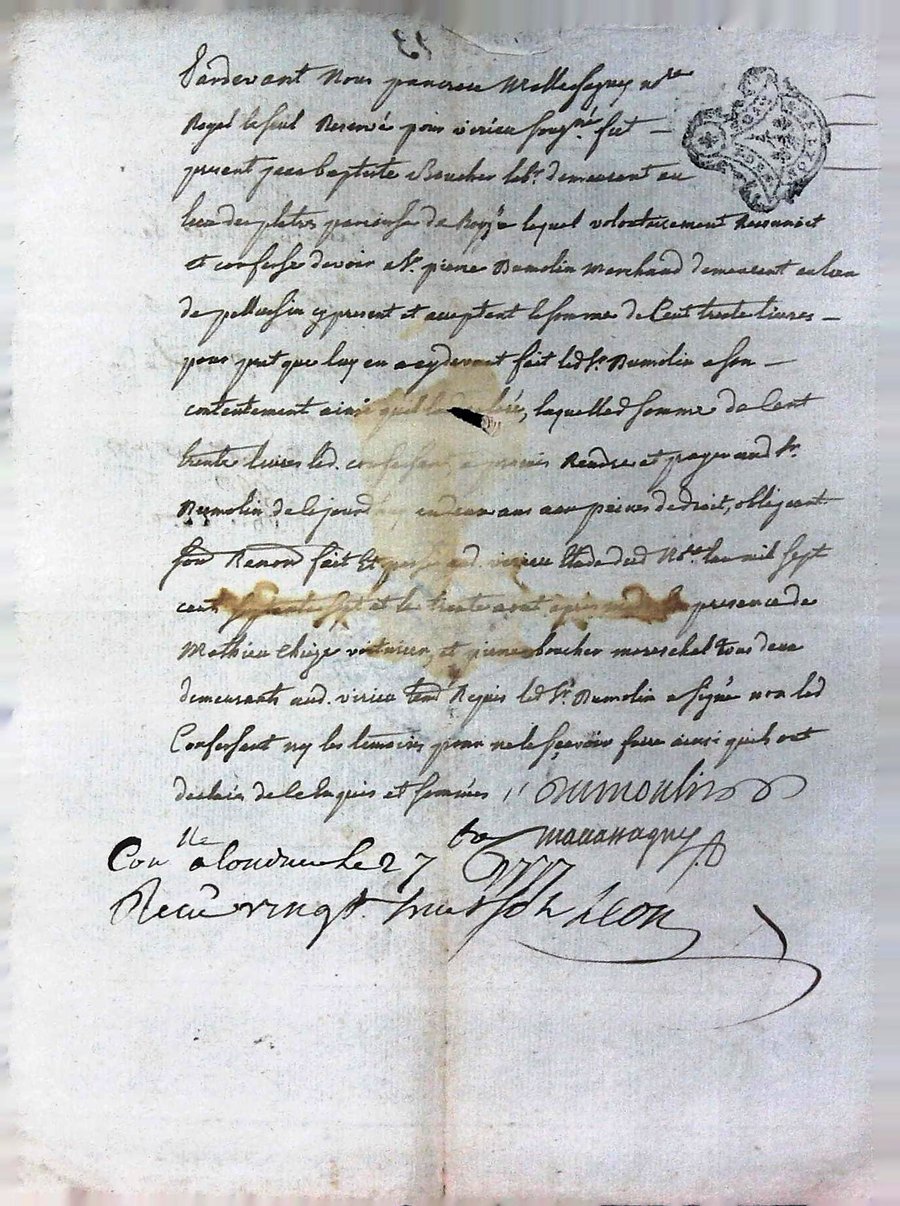 Pardevant Nous pancrace Mallassagny nre
Royal le seul Reservé pour virieu soug.né fut
present jean baptiste Boucher labr demeurant au
lieu des platres paroisse de lequel volontairement Reconnoit
et confesse devoir a Sr pierre Dumolin Marchand demeurant au lieu
de pellussin cy present et acceptant la somme de Cent trente livres
pour pret que luy en a cydevant fait led Sr Dumolin a son
contentement ainsi quil la, laquelle d somme de Cent
trente livres led. confessant a promis Rendre et payer aud Sr
Dumolin de ce jourdhuy en deux ans aux peines de droit, obligeant
fait et passé aud. virieu Etude dud Nore lan mil sept
cent septante sept et le trente aout apres midi en presence de
Mathieu voiturier, et pierre boucher mareschal tous deux
demeurants aud. virieu tem Requis led Sr Dumolin a signé non led
Confessant ny les temoins pour ne le sçavoir faire ainsi quils ont
declaré de ce Enquis et sommés Dumoulin
Con lle a condrieu le 27
Receu vingt huit sols Leon